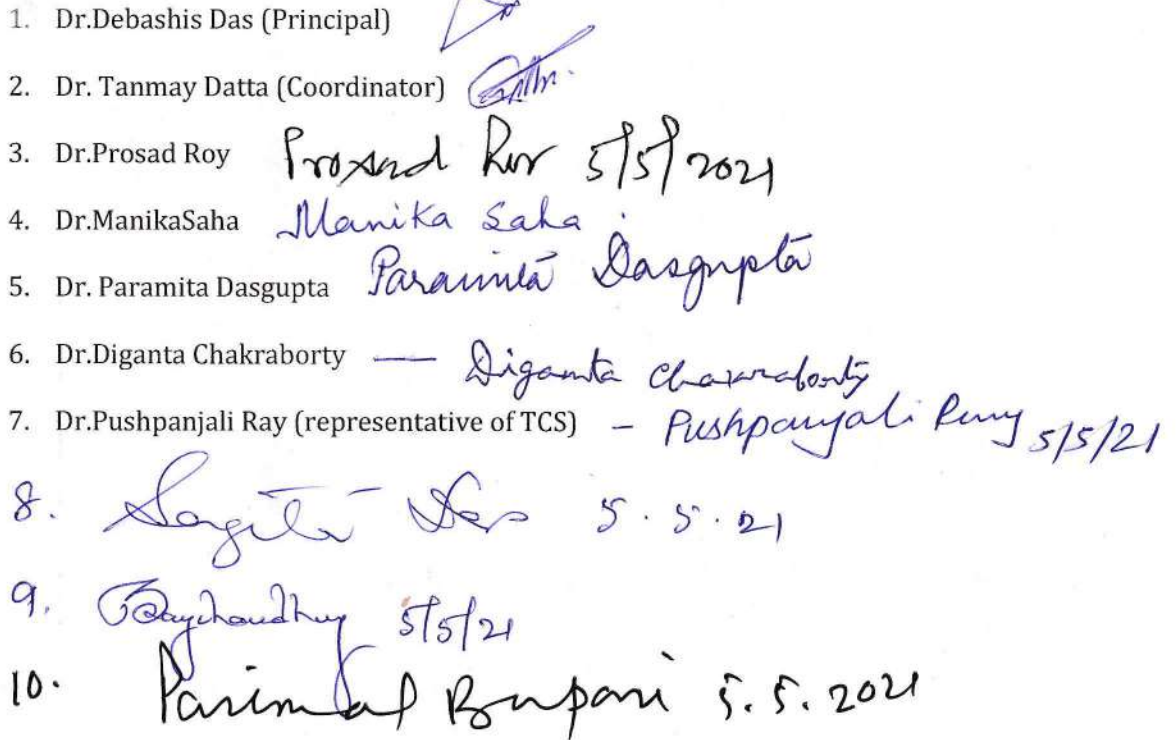 1. Dr.Debashis Das (Principal)
2. Dr. Tanmay Datta (Coordinator)
3. Dr.Prosad Roy Prosad Roy 5/5/2021
4. Dr.ManikaSaha Manika Saha
5. Dr. Paramita Dasgupta Paramita Dasgupta
6. Dr.Diganta Chakraborty — Diganta Chakraborty
7. Dr.Pushpanjali Ray (representative of TCS) – Pushpanjali Ray 5/5/21
8. Das 5.5.21
9. 5/5/21
10. Parimal Bepari 5.5.2021